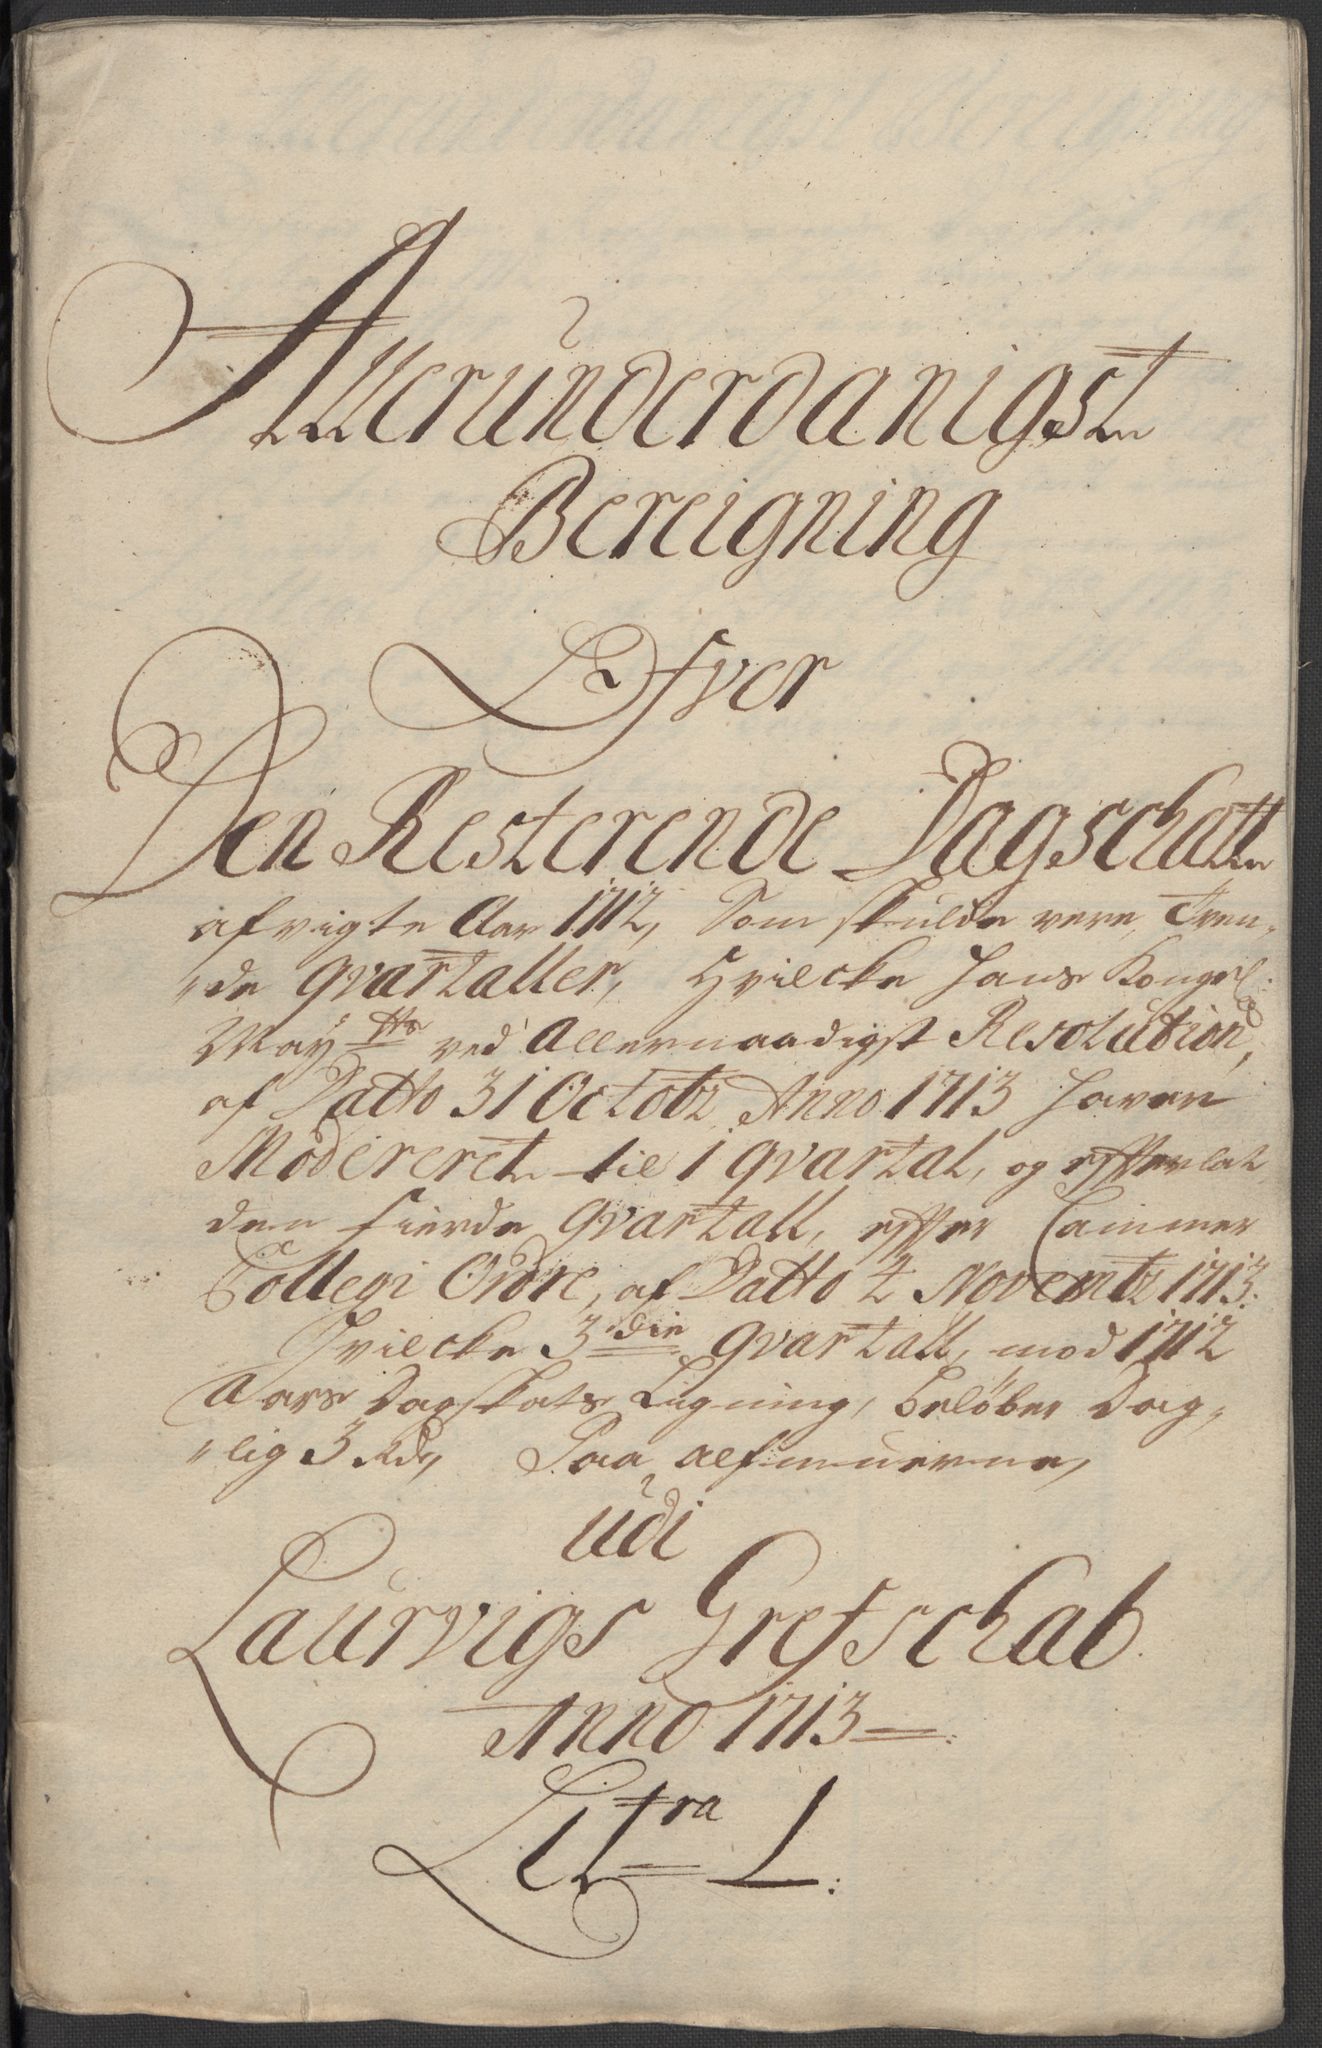 Alleründerdanigst
Bereigning
Ofver
Den Resterende Dagschatt
afvigte Aar 1712, Som skulde vere, Tren„
„de qvartaller, Hvilcke Hans Kongel:
May tts ved Allernaadigst Resolution,
af Datto 31 Octobr Anno 1713 haver
Modereret til 1 qvartal, og efterlat
den fierde qvartall, efter Cammer
Collegi Ordre, af Datto 2 Novembr 1713:
Hvilcke 3die qvartall, mod 1712
Aars Dagskats Ligning, beløber Dag„
„lig 3 Rd, Paa alfmuerne,
udi
Laurvigs Grefschab
Anno 1713
Litra L: